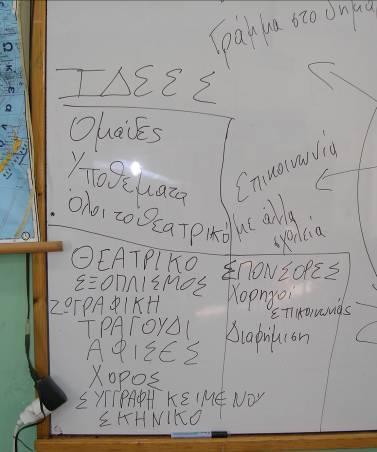 Γράμμα στο δήμα
ΙΔΕΕΣ
Ομάδες
Υποθέματα
Όλοι το θεατρικό
Επικοινωνία
με άλλα
σχολεία
ΘΕΑΤΡΙΚΟ
ΕΞΟΠΛΙΣΜΟΣ
ΖΩΓΡΑΦΙΚΗ
ΤΡΑΓΟΥΔΙ
ΑΦΙΣΕΣ
ΧΟΡΟΣ
ΣΥΓΓΡΑΦΗ ΚΕΙΜΕΝΟΥ
ΣΚΗΝΙΚΟ
ΣΠΟΝΣΟΡΕΣ
Χορηγοί
επικοινωνίας
Διαφήμιση